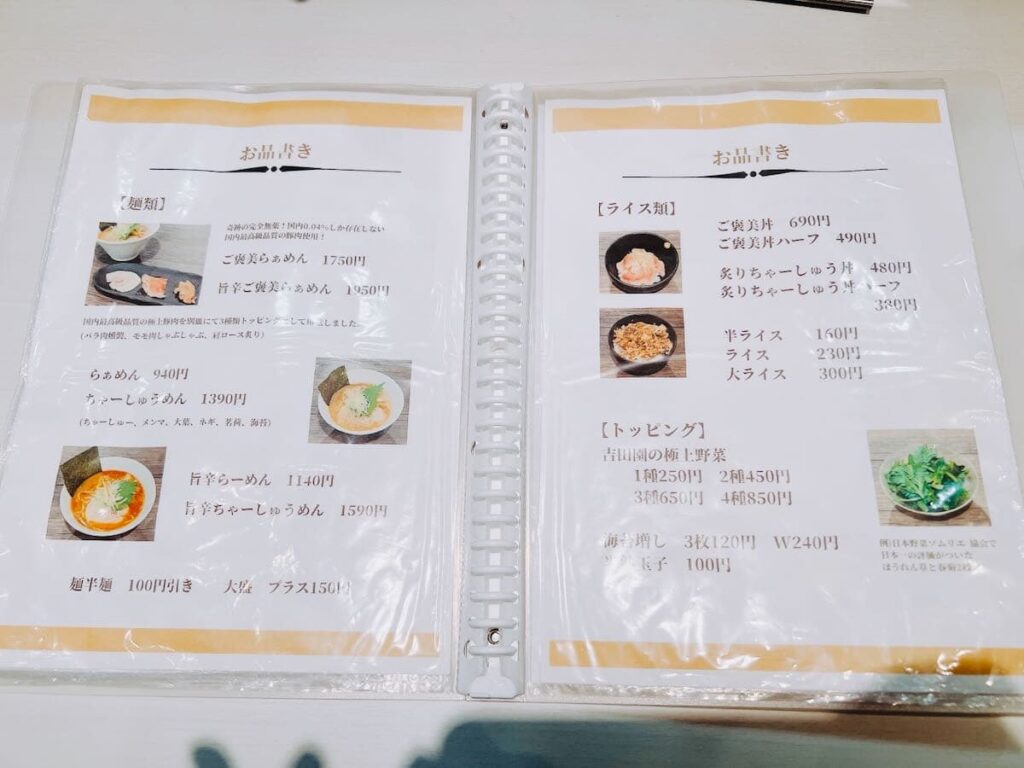 お品書き
【麺類】
奇跡の完全無薬！国内0.04%しか存在しない
国内最高級品質の豚肉使用！
ご褒美らぁめん 1750円
旨辛ご褒美らぁめん 1950円
国内最高級品質の極上豚肉を別皿にて3種類トッピングとして
(バラ肉燻製、モモ肉しゃぶしゃぶ、肩ロース炙り)
らぁめん 940円
ちゃーしゅうめん 1390円
(ちゃーしゅー、メンマ、大葉、ネギ、茗荷、海苔)
旨辛らーめん 1140円
旨辛ちゃーしゅうめん 1590円
麺半麺 100円引き 大盛 プラス150円
お品書き
【ライス類】
ご褒美丼 690円
ご褒美丼ハーフ 490円
炙りちゃーしゅう丼 480円
炙りちゃーしゅう丼ハーフ
380円
半ライス 160円
ライス 230円
大ライス 300円
【トッピング】
吉田園の極上野菜
1種250円 2種450円
3種650円 4種850円
海苔増し 3枚120円 W240円
玉子 100円
例)日本野菜ソムリエ 協会で
日本一の評価がついた
ほうれん草と春菊2種